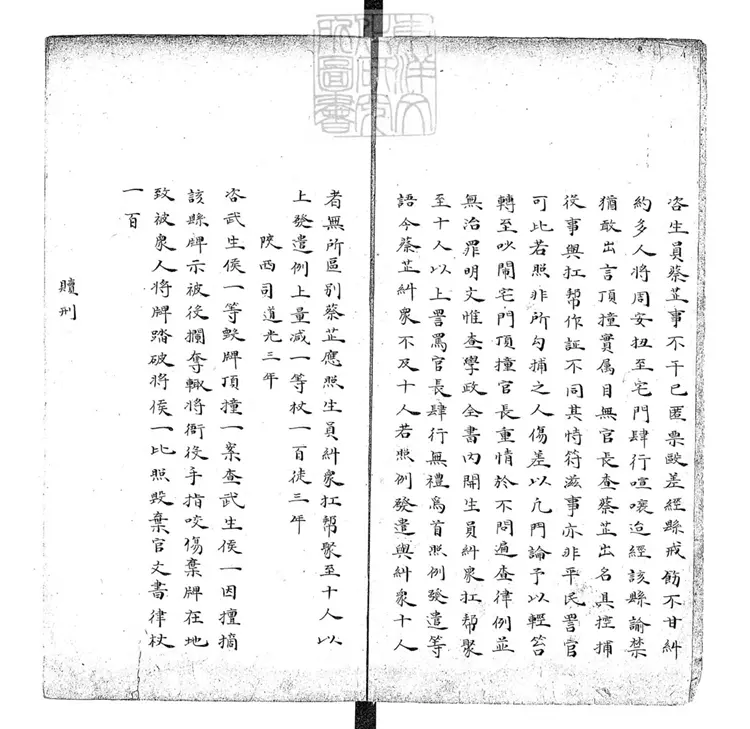 咨生員蔡芷事不干己匿票毆差經縣戒飭不甘糾
約多人將周安扭至宅門肆行喧嚷迨經該縣諭禁
猶敢出言頂撞實属目無官長查蔡芷出名具控捕
役事與扛帮作証不同其恃符滋事亦非平民詈官
可比若照非所勾捕之人傷差以凢鬥論予以輕笞
轉至吵鬧宅門頂撞官長重情於不問遍查律例並
無治罪明文惟查學政全書內開生員糾衆扛帮聚
至十人以上詈罵官長肆行無禮爲首照例發遣等
語今蔡芷糾衆不及十人若照例發遣與糾衆十人
者無所區別蔡芷應照生員糾衆扛帮聚至十人以
上發遣例上量減一等杖一百徒三年
陝西司道光三年
咨武生侯一等毀牌頂撞一案查武生侯一因擅摘
該縣牌示被役攔奪輙將衙役手指咬傷棄牌在地
致被衆人將牌踏破將侯一比照毀棄官文書律杖
一百
贖刑
東洋文
化研究
所圖書